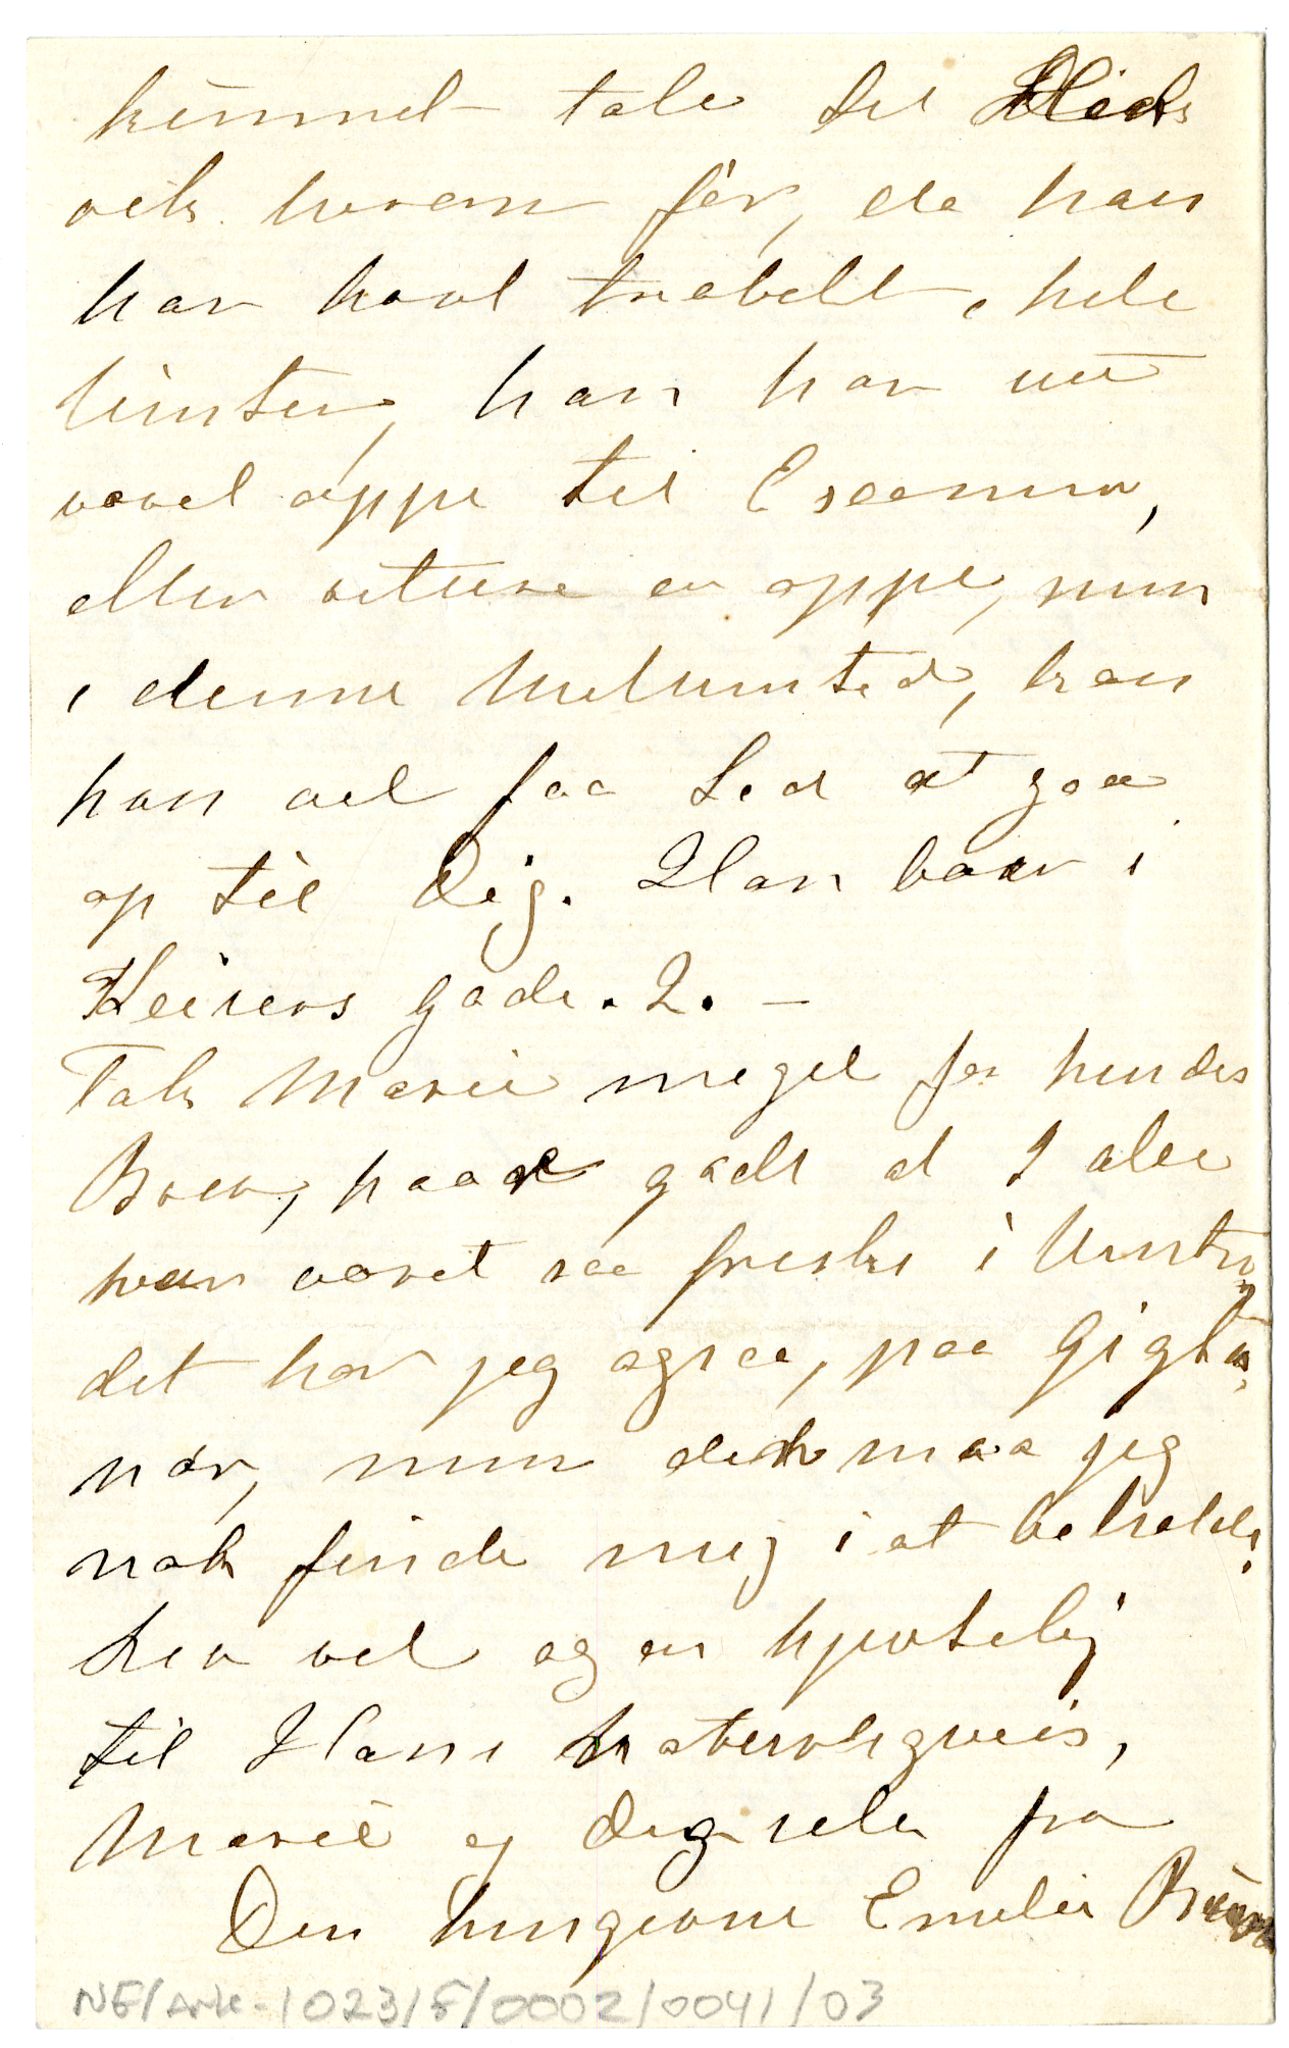 kunnet tale til
vik hvorom før, da han
har havt travelt i hele
Vinter, han har nu
været oppe til Examen,
eller rettere er oppe, nun
i denne Mellumtid, kan
han vel faa Tid at gaa
op til Dig. Han boer i
Keisers gade. 2. –
Tak Marie meget for hendes
Brev, gadt at I alle
have været saa friske i Vinter,
det har jeg ogsaa, paa Gigten
nær, nun den maa jeg
nok finde mig i at beholde.
Lev vel og en hjertelig
til Hans naturligveis,
Marie og Dig selv fra
Din hengivne Emilie
NF/Ark-1023/F/0002/0041/03